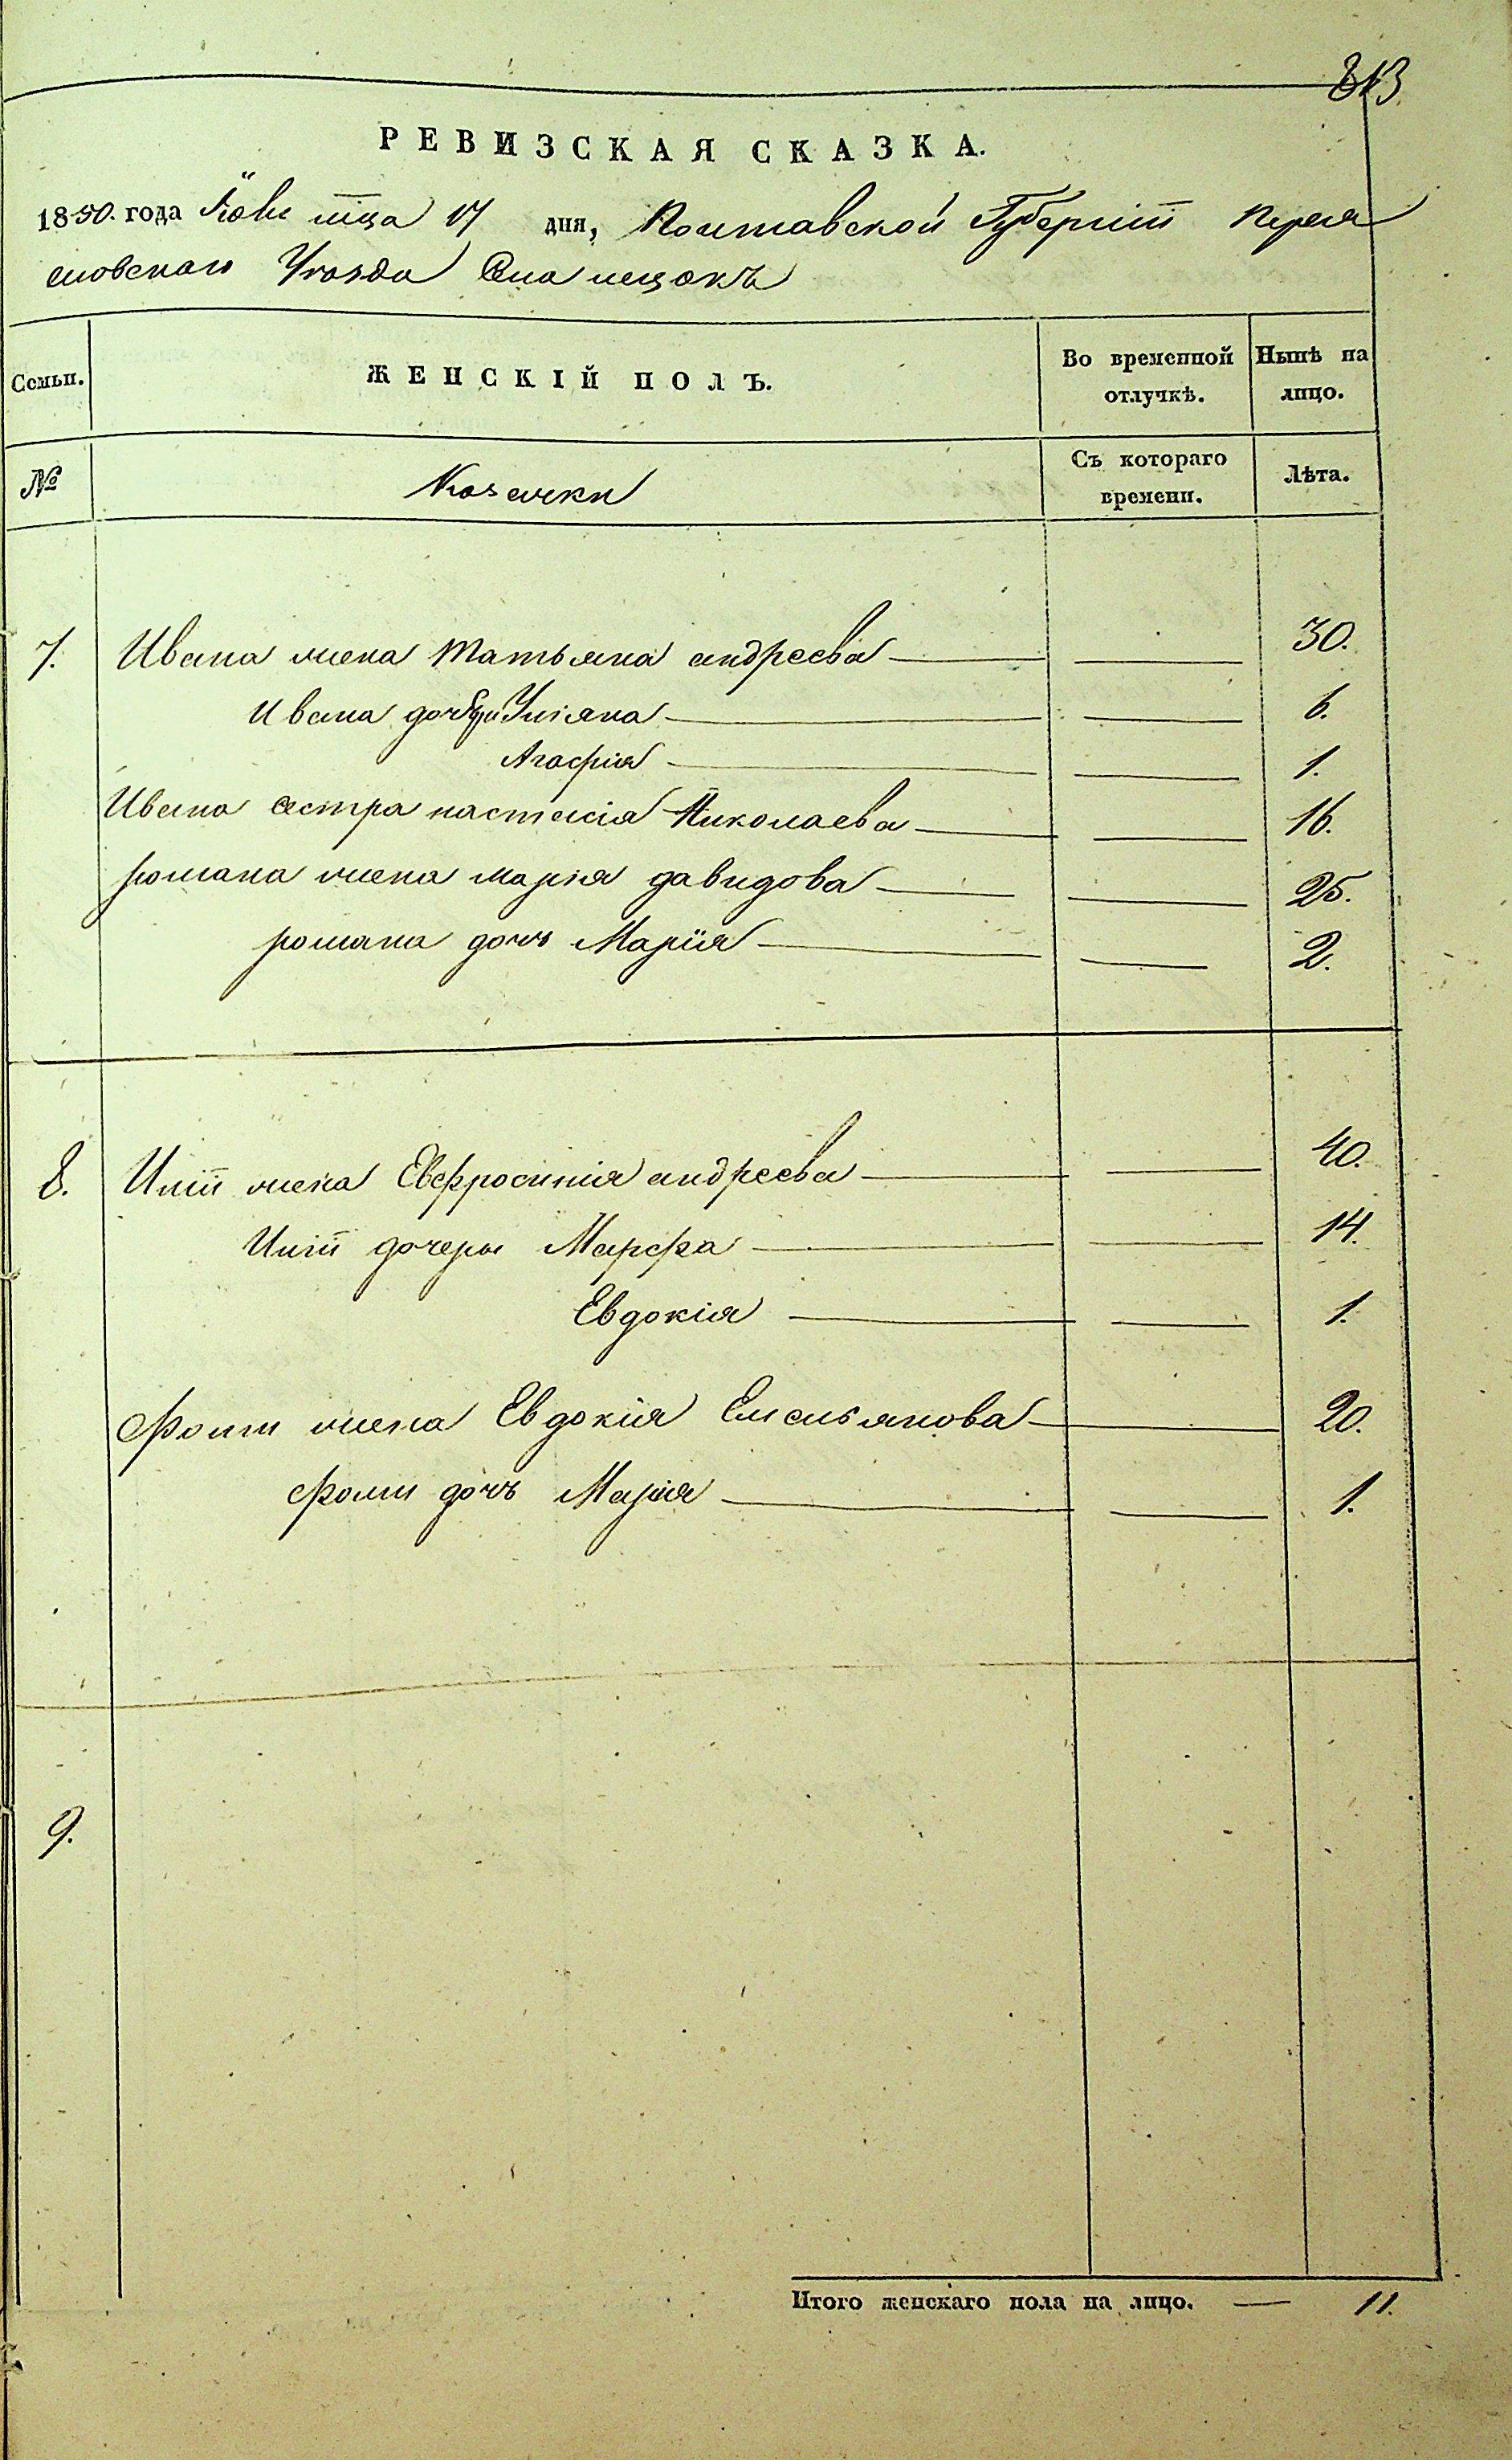 813
РЕВИЗСКАЯ СКАЗКА.
1850. года Іюля мца 17 дня, Полтавской Губерніи Перея
словскаго Уезда Села
Семьи.
ЖЕНСКІЙ ПОЛЪ.
Во временной отлучкѣ.
Нынѣ на лицо.
№
Козачки
Съ котораго времени.
Лѣта.
7. Ивана жена татьяна андреева — — 30.
Ивана дочери Уліяна — — 6.
Агафія — — 1.
Ивана сестра настасія Николаева — — 16.
романа жена марія давидова — — 25.
романа дочь Марія — — 2.
8. Иліи жена Евфросинія андреева — — 40.
Иліи дочеры Марфа — — 14.
Евдокія — — 1.
Фомы жена Евдокія Емельянова — 20.
фомы дочь Марія — — 1.
9.
Итого женскаго пола на лицо. — 11.